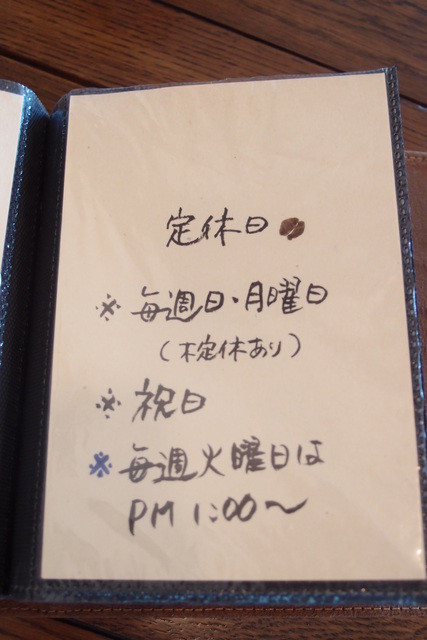 定休日
※ 毎週日・月曜日
(不定休あり)
※ 祝日
※ 毎週火曜日は
PM 1:00〜